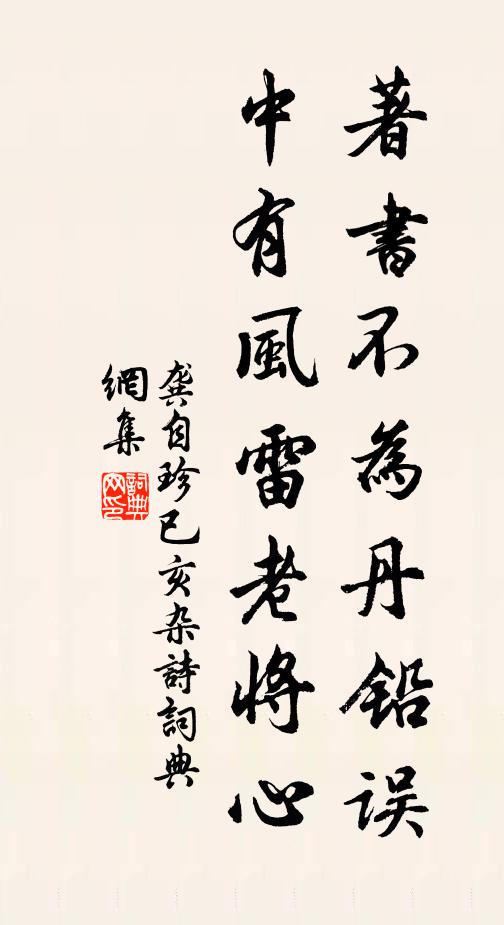 著書不為丹鉛误
中有風雷老將心
龔自珍已亥杂詩詞典
網集
詞典
网印